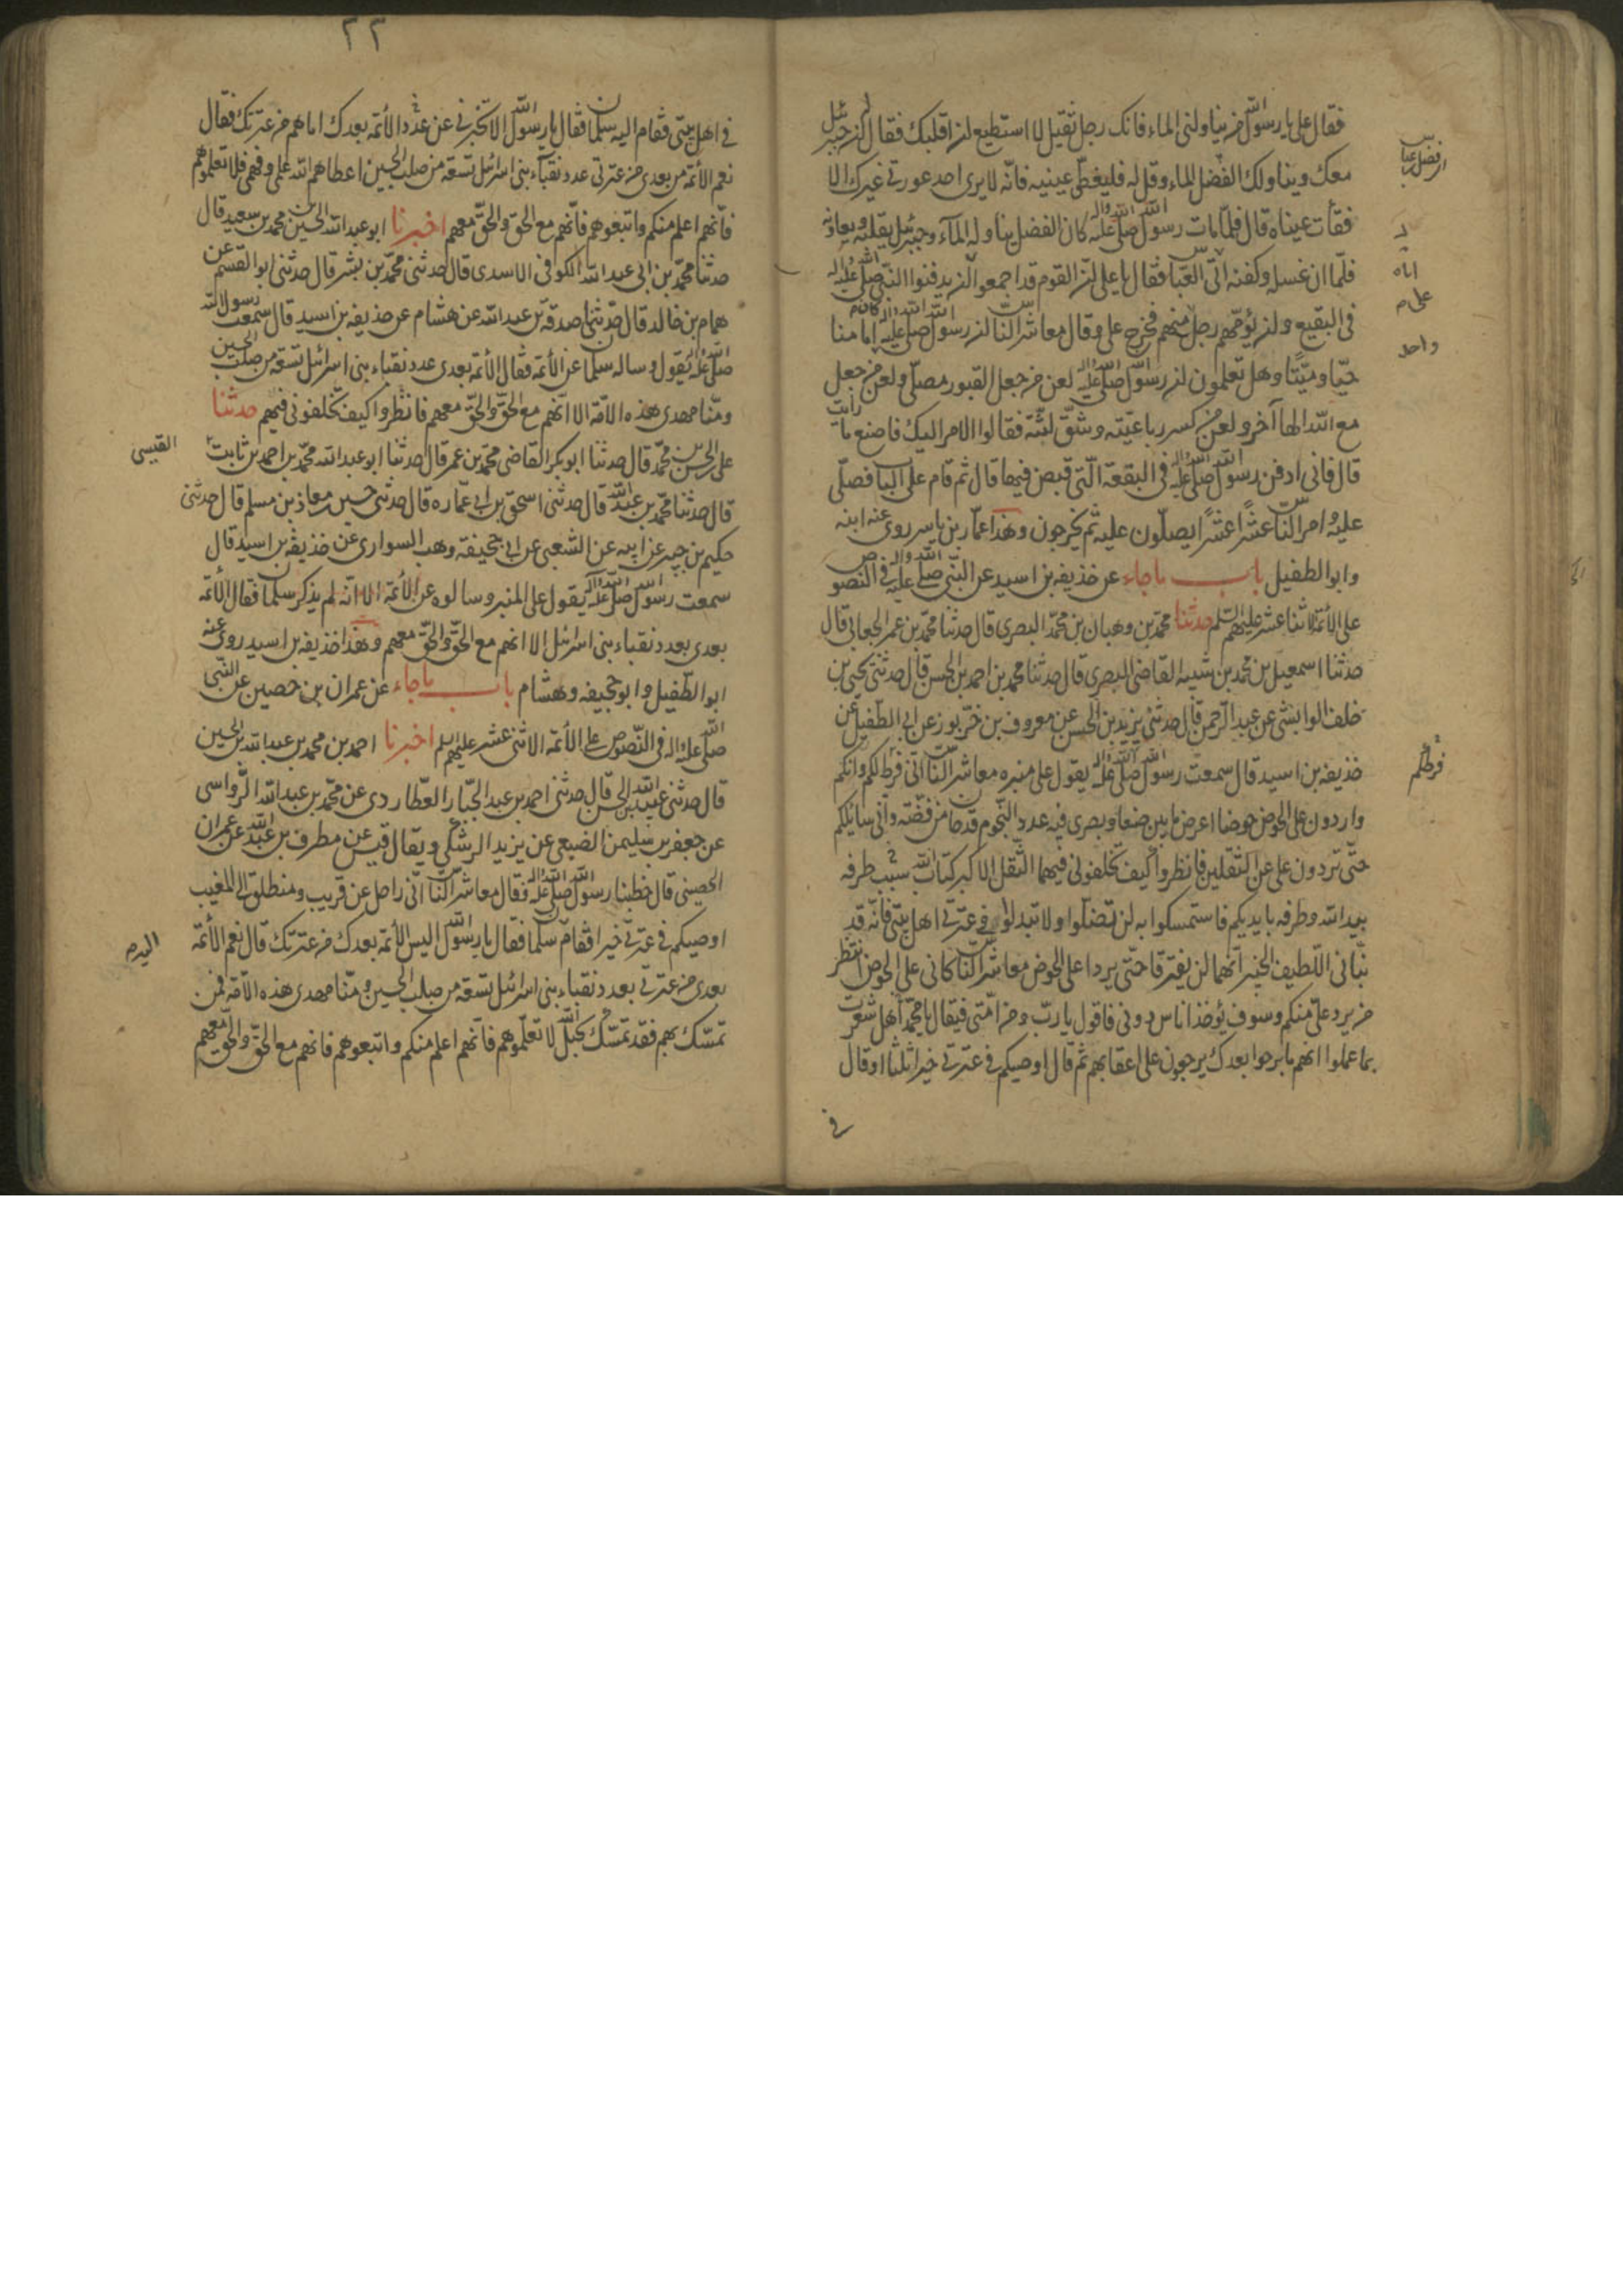 فقال علي يا رسول الله من يناولني الماء فانك رجل ثقيل لا استطيع ان اقلبك فقال ان جبرئيل
معك ويناولك الفضل الماء وقل له فليغطي عينيه فانه لا يرى احد عورتي غيرك الا
فقأت عيناه قال فلما مات رسول الله صلى الله عليه واله كان الفضل يناوله الماء وجبرئيل يقلبه ويعاونه
فلما ان غسله وكفنه اتى العباس فقال يا علي ان القوم قد اجمعوا ان يدفنوا النبي صلى الله عليه واله
في البقيع وان يؤمهم رجل منهم فخرج علي وقال معاشر الناس ان رسول الله صلى الله عليه واله كان امامنا
حيا وميتا وهل تعلمون ان رسول الله صلى الله عليه واله لعن من جعل القبور مصلى ولعن من جعل
مع الله الها آخر ولعن من كسر رباعيته وشق لثته فقالوا الامر اليك فاصنع ما رايت
قال فاني ادفن رسول الله صلى الله عليه واله في البقعة التي قبض فيها قال ثم قام على الباب فصلى
عليه وامر الناس عشرا عشرا يصلون عليه ثم يخرجون وهذا عمار بن ياسر روى عنه ابنه
وابو الطفيل باب ما جاء عن حذيفة بن اسيد عن النبي صلى الله عليه واله في النصوص
على الأئمة الاثنا عشر عليهم السلم حدثنا محمد بن وهبان بن محمد البصري قال حدثنا محمد بن عمر الجعابي قال
حدثنا اسمعيل بن محمد بن شيبه القاضي البصري قال حدثنا محمد بن احمد بن الحسن قال حدثني يحيى بن
خلف الوابشي عن عبد الرحمن قال حدثني يزيد بن الحسن عن معروف بن خربوز عن ابي الطفيل عن
حذيفة بن اسيد قال سمعت رسول الله صلى الله عليه واله يقول على منبره معاشر الناس اني فرط لكم وانكم
واردون على الحوض حوضا اعرض ما بين صنعا وبصرى فيه عدد النجوم قدحان من فضة واني سائلكم
حتى تردون علي عن الثقلين فانظروا كيف تخلفوني فيهما الثقل الاكبر كتاب الله سبب طرفه
بيد الله وطرفه بايديكم فاستمسكوا به لن تضلوا ولا تبدلوا في عترتي اهل بيتي فانه قد
نبأني اللطيف الخبير انهما لن يفترقا حتى يردا علي الحوض معاشر الناس كاني على الحوض انتظر
من يرد علي منكم وسوف يؤخذ اناس دوني فاقول يا رب ومن امتي فيقال يا محمد هل شعرت
بما عملوا انهم ما برحوا بعدك يرجعون على اعقابهم ثم قال اوصيكم في عترتي خيرا ثلثا او قال
في
اباه
واحد
فرطكم
٢٣
في اهل بيتي فقام اليه سلمان فقال يا رسول الله الا تخبرني عن عدد الأئمة بعدك اما هم من عترتك فقال
نعم الأئمة من بعدي من عترتي عدد نقباء بني اسرائيل تسعة من صلب الحسين اعطاهم الله علمي وفهمي فلا تعلموهم
فانهم اعلم منكم واتبعوهم فانهم مع الحق والحق معهم اخبرنا ابو عبد الله الحسين بن محمد بن سعيد قال
حدثنا محمد بن ابي عبد الله الكوفي الاسدي قال حدثني محمد بن بشر قال حدثني ابو القسم عن
همام بن خالد قال حدثنا صدقة بن عبد الله عن هشام عن حذيفة بن اسيد قال سمعت رسول الله
صلى الله عليه يقول وساله سلمان عن الأئمة فقال الأئمة بعدي عدد نقباء بني اسرائيل تسعة من صلب الحسين
ومنا مهدي هذه الامة الا انهم مع الحق والحق معهم فانظروا كيف تخلفوني فيهم حدثنا
علي بن الحسن بن محمد قال حدثنا ابو بكر القاضي محمد بن عمر قال حدثنا ابو عبد الله محمد بن احمد بن ثابت
القيسي
قال حدثنا محمد بن عبد الله قال حدثني اسحق بن ابي عماره قال حدثني حسين بن معاذ بن مسلم قال حدثني
حكيم بن جبير عن ابيه عن الشعبي عن ابي جحيفة وهب السواري عن حذيفة بن اسيد قال
سمعت رسول الله صلى الله عليه واله يقول على المنبر وسالوه عن الأئمة الا انه لم يذكر سلمان فقال الأئمة
بعدي بعدد نقباء بني اسرائيل الا انهم مع الحق والحق معهم وهذا حذيفة بن اسيد روى عنه
ابو الطفيل وابو جحيفه وهشام باب ما جاء عن عمران بن حصين عن النبي
صلى الله عليه واله في النصوص على الأئمة الاثني عشر عليهم السلم اخبرنا احمد بن محمد بن عبد الله بن الحسين
قال حدثني عبيد الله بن الحسن قال حدثني احمد بن عبد الجبار العطاردي عن محمد بن عبد الله الرواسي
عن جعفر بن سليمن الضبعي عن يزيد الرشك ويقال قيس عن مطرف بن عبد الله عن عمران
الحصيني قال خطبنا رسول الله صلى الله عليه واله فقال معاشر الناس اني راحل عن قريب ومنطلق الى المغيب
اوصيكم في عترتي خيرا فقام سلمان فقال يا رسول الله اليس الأئمة بعدك من عترتك قال نعم الأئمة
بعدي من عترتي بعدد نقباء بني اسرائيل تسعة من صلب الحسين ومنا مهدي هذه الامة فمن
تمسك بهم فقد تمسك بحبل الله لا تعلموهم فانهم اعلم منكم واتبعوهم فانهم مع الحق والحق معهم